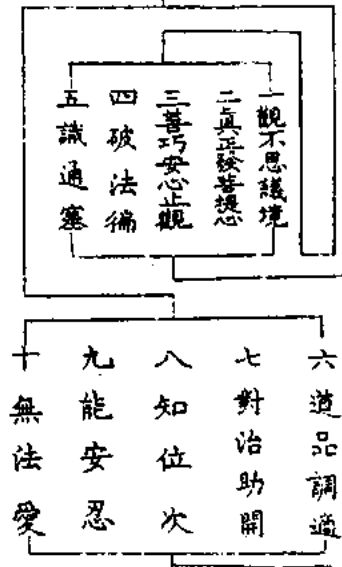 一觀不思議境
二真正發菩提心
三善巧安心止觀
四破法徧
五識通塞
六道品調適
七對治助開
八知位次
九能安忍
十無法愛